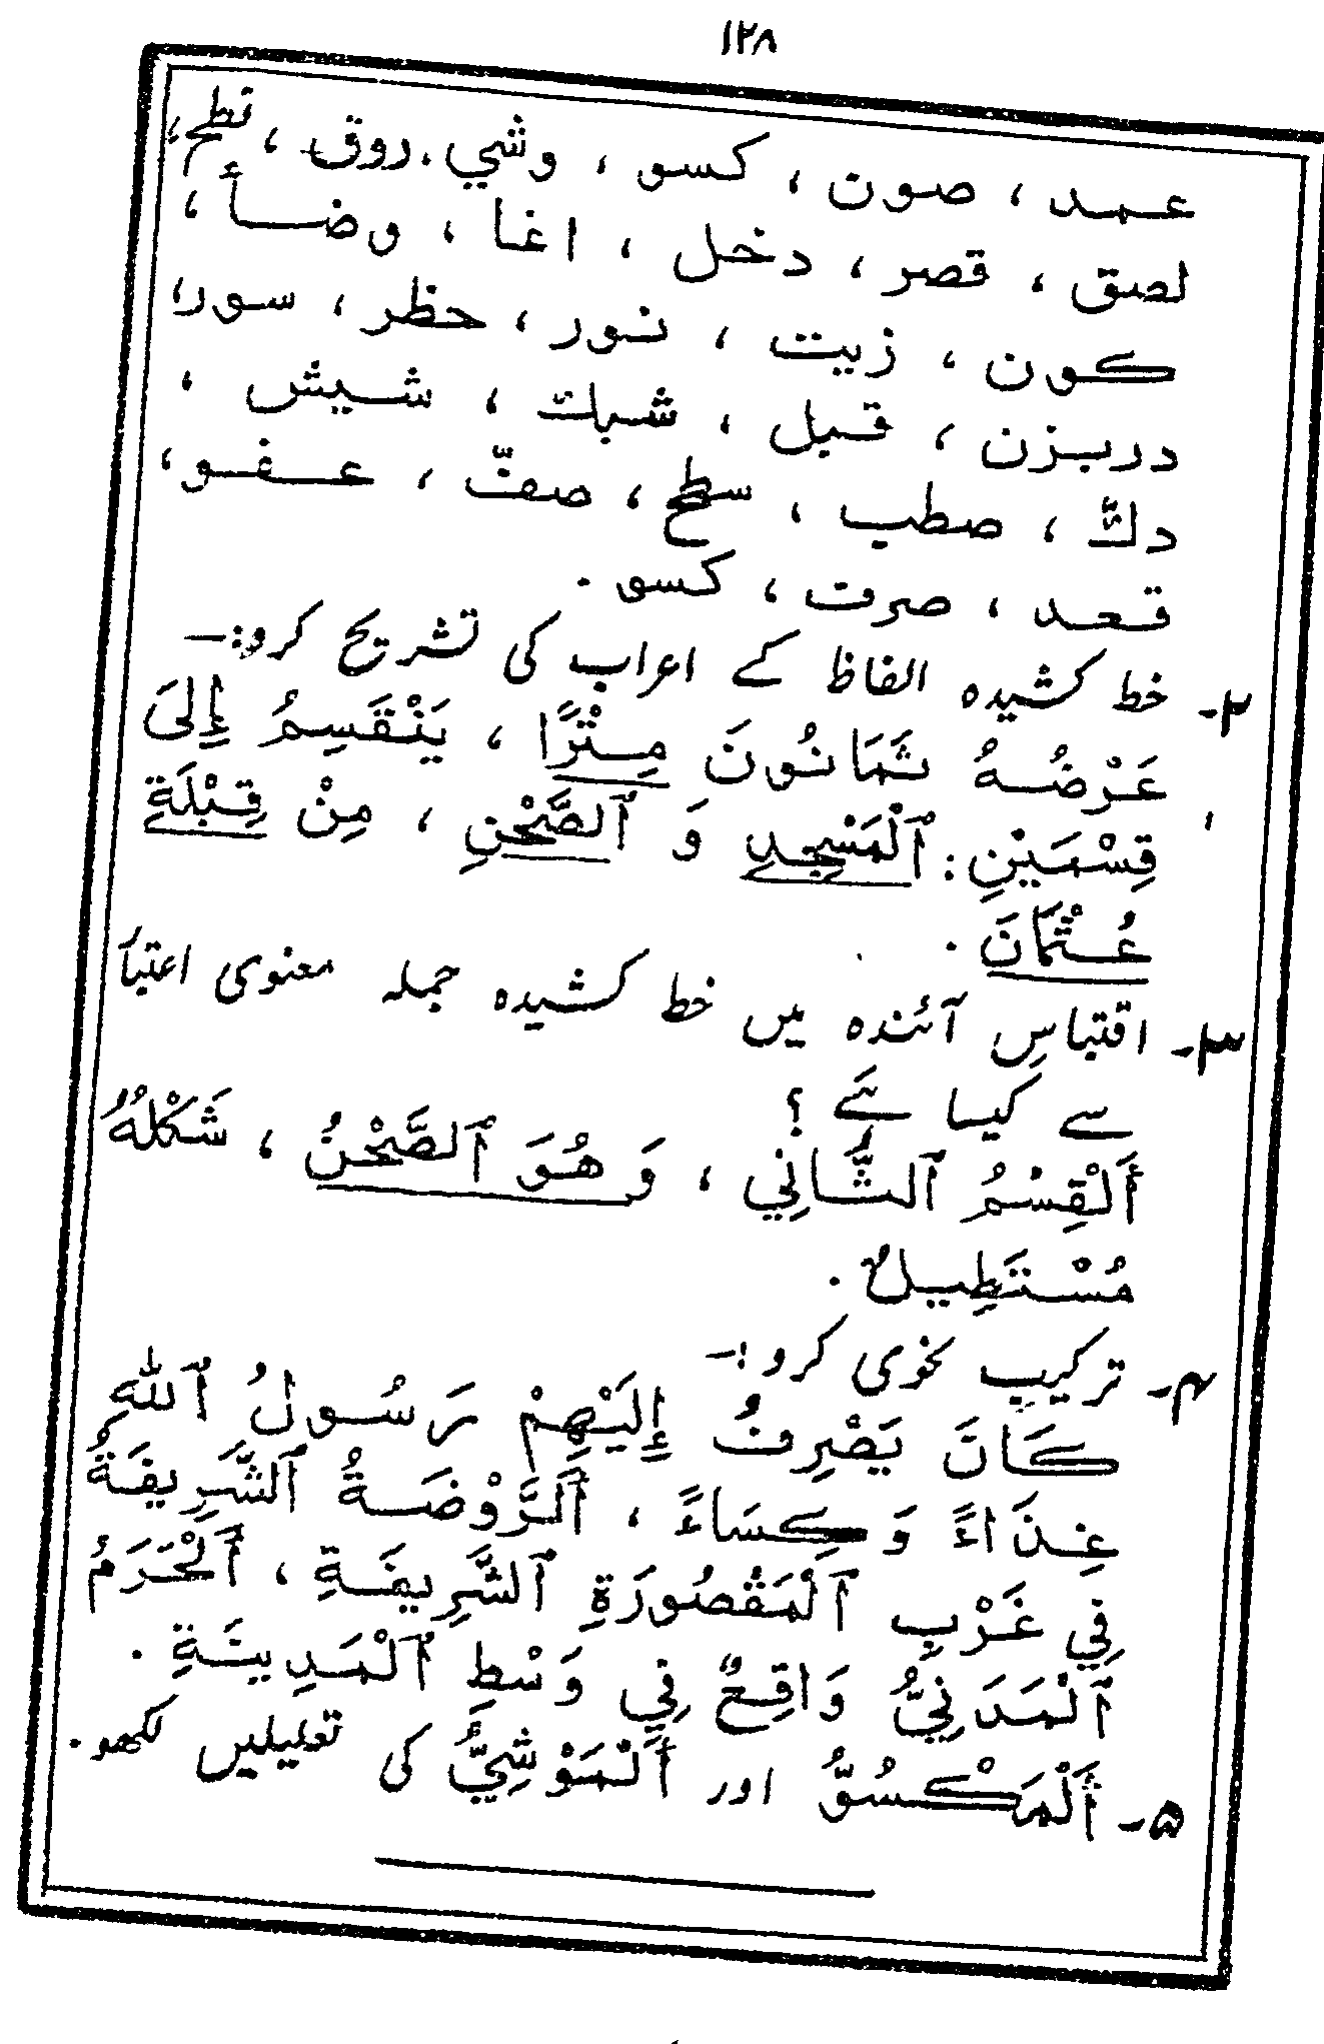 ۱۲۸
عمد ، صون ، كسو ، وشي ، روق ، نطح ،
لصق ، قصر ، دخل ، اغا ، وضأ ،
كون ، زيت ، نور ، حظر ، سور ،
دربزن ، قبل ، شبك ، شيش ،
دكّ ، صطب ، سطح ، صفّ ، عفو ،
قعد ، صرف ، كسو .
۲- خط کشیدہ الفاظ کے اعراب کی تشریح کرو:—
عَرْضُهُ ثَمَانُونَ مِتْرًا ، يَنْقَسِمُ إِلىَ
قِسْمَيْنِ: ٱلْمَسْجِدِ وَ ٱلصَّحْنِ ، مِنْ قِبْلَةِ
عُثْمَانَ .
۳- اقتباسِ آئندہ میں خط کشیدہ جملہ معنوی اعتبار
سے کیسا ہَے ؟
أَلْقِسْمُ ٱلثَّانِي ، وَهُوَ ٱلصَّحْنُ ، شَكْلُهُ
مُسْتَطِيلٌ .
۴- ترکیبِ نحوی کرو :—
كَانَ يَصْرِفُ إِلَيْهِمْ رَسُولُ ٱللهِ
غِذَاءً وَكِسَاءً ، أَلرَّوْضَةُ ٱلشَّرِيفَةُ
فِي غَرْبِ ٱلْمَقْصُورَةِ ٱلشَّرِيفَةِ ، أَلْحَرَمُ
ٱلْمَدَنِيُّ وَاقِعٌ فِي وَسْطِ ٱلْمَدِينَةِ .
۵- أَلْمَكْسُوُّ اور أَلْمَوْشِيُّ کی تعلیلیں لکھو.